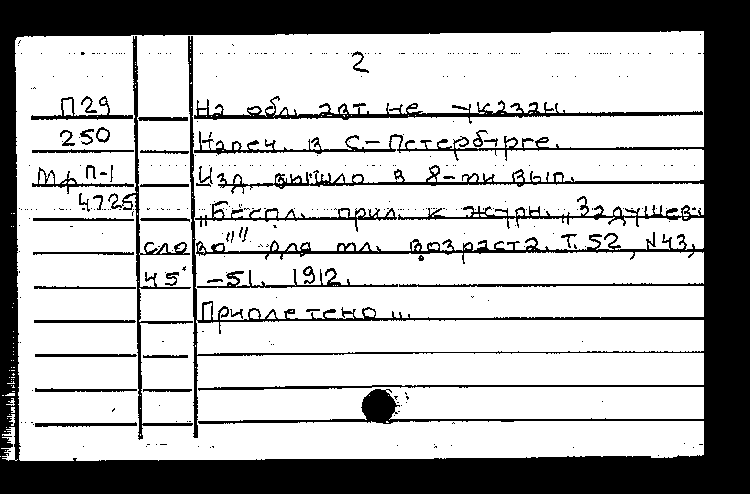 2
П29 На обл. авт. не указан.
250 Напеч. в С-Петербурге.
Мф П-1 Изд. вышло в 8-ми вып.
4725 „Беспл. прил. к журн. „Задушев.
слово"" для мл. возраста. Т. 52, N43,
45 -51. 1912.
Приплетено...